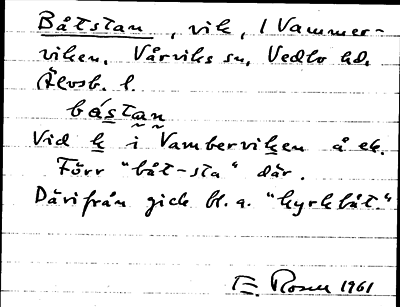 Båtstan, vik, I Vammer-
viken. Vårviks sn, Vedbo hd.
Älvsb. l.
båstan
Vid k i Vamberviken å ek.
Förr "båt-sta" där.
Därifrån gick bl. a. "kyrkbåt."
E. Rosen 1961